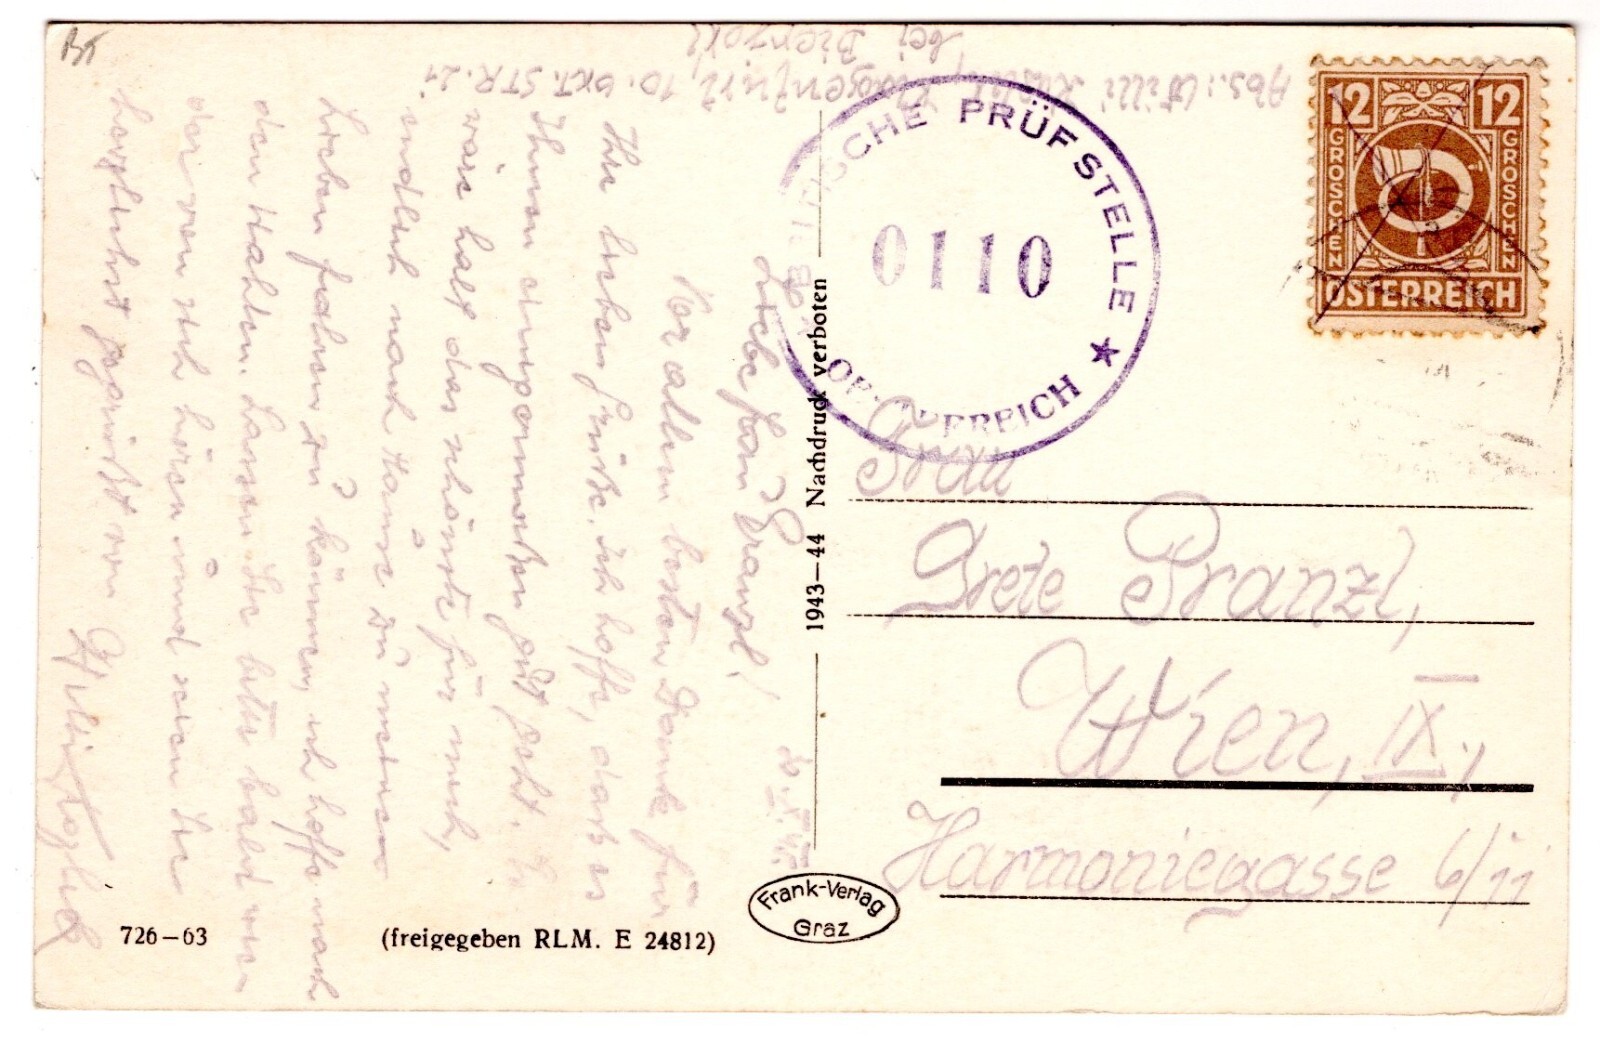 Abs.: Willi
Klagenfurt, 10. OKT. STR. 21
bei Dienzl
12 12
GROSCHEN GROSCHEN
ÖSTERREICH
BRITISCHE PRÜFSTELLE ★
0110
OESTERREICH
Frau
Grete Pranzl,
Wien, IX.,
Harmoniegasse 6/11
1943—44 Nachdruck verboten
Liebe Frau Pranzl!
Vor allem besten Dank für
Ihre lieben Grüße. Ich hoffe, daß es
Ihnen einigermaßen gut geht. Es
wäre halt das schönste für mich,
endlich nach Hause zu meinen
Lieben fahren zu können, ich hoffe nach
den Wahlen. Lassen Sie bitte bald wie-
der von sich hören und seien Sie
herzlichst gegrüßt von
726—63
(freigegeben RLM. E 24812)
Frank-Verlag
Graz